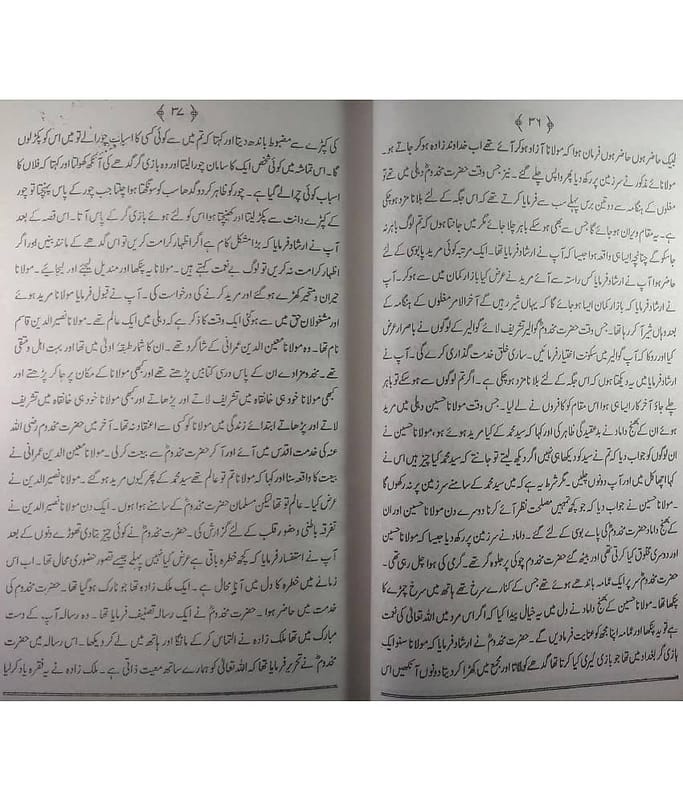 ﴿۳۶﴾
لبیک حاضر ہوں حاضر ہوں فرمان ہوا کہ مولانا آزاد ہو کر آئے تھے اب خداوند زادہ ہو کر جاتے ہو۔
مولانائے مذکور نے سر زمین پر رکھ دیا پھر واپس چلے گئے۔ نیز جس وقت حضرت مخدومؒ دہلی میں تھے تو
مغلوں کے ہنگامہ سے دو تین برس پہلے سب سے فرمایا کرتے تھے کہ اس جگہ کے لئے بلا نامزد ہو چکی
ہے۔ یہ مقام ویران ہو جائے گا جس سے بھی ہو سکے باہر چلا جائے مگر میں جانتا ہوں کہ تم لوگ باہر نہ
جا سکو گے چنانچہ ایسا ہی واقعہ ہوا جیسا کہ آپ نے ارشاد فرمایا تھا۔ ایک مرتبہ کوئی مرید پابوسی کے لئے
حاضر ہوا آپ نے ارشاد فرمایا کس راستہ سے آئے مرید نے عرض کیا بازار کمان میں سے ہو کر۔ آپ
نے ارشاد فرمایا کہ بازار کمان ایسا ہو جائے گا کہ یہاں شیر رہیں گے آخر الامر مغلوں کے ہنگامہ کے
بعد وہاں شیر آ کر رہا تھا۔ جس وقت حضرت مخدومؒ گوالیر تشریف لائے گوالیر کے لوگوں نے باصرار عرض
کیا اور روکا کہ آپ گوالیر میں سکونت اختیار فرمائیں۔ ساری خلق خدمت گذاری کرے گی۔ آپ نے
ارشاد فرمایا میں یہ دیکھتا ہوں کہ اس جگہ کے لئے بلا نامزد ہو چکی ہے۔ اگر تم لوگوں سے ہو سکے تو باہر
چلے جاؤ آخر کار ایسا ہی ہوا اس مقام کو کافروں نے لے لیا۔ جس وقت مولانا حسین دہلی میں مرید
ہوئے ان کے بھنج داماد نے بدعقیدگی ظاہر کی اور کہا کہ سید محمد کے کیا مرید ہوئے ہو، مولانا حسین نے
ان لوگوں کو جواب دیا کہ تم نے سید کو دیکھا ہی نہیں اگر دیکھ لیتے تو جانتے کہ سید محمد کیا چیز ہیں اس نے
کہا اچھا کل میں اور آپ دونوں چلیں۔ مگر شرط یہ ہے کہ میں سید محمد کے سامنے سر زمین پر نہ رکھوں گا
۔مولانا حسین نے جواب دیا کہ جو کچھ تمہیں مصلحت نظر آئے کرنا دوسرے دن مولانا حسین اور ان
کے بھنج داماد حضرت مخدوم کی پائے بوسی کے لئے گئے۔ داماد نے سر زمین پر رکھ دیا جیسا کہ مولانا حسین
اور دوسری مخلوق کیا کرتی تھی اور بیٹھ گئے حضرت مخدومؒ چوکی پر جلوہ گر تھے۔ گرمی کی ہوا چل رہی تھی۔
حضرت مخدومؒ سر پر ایک عمامہ باندھے ہوئے تھے جس کے کنارے سرخ تھے ہاتھ میں سرخ چمڑے کا
پنکھا تھا۔ مولانا حسین کے بھنج داماد نے دل میں یہ خیال پیدا کیا کہ اگر اس مرد میں اللہ تعالیٰ کی نعمت
ہے تو یہ پنکھا اور عمامہ اپنا مجھ کو عنایت فرما دیں گے۔ حضرت مخدومؒ نے ارشاد فرمایا کہ مولانا سنو ایک
بازی گر بغداد میں تھا جو بازی گیری کیا کرتا تھا گدھے کو لاتا اور مجمع میں کھڑا کر دیتا دونوں آنکھیں اس
﴿۳۷﴾
کی کپڑے سے مضبوط باندھ دیتا اور کہتا کہ تم میں سے کوئی کسی کا اسباب چورا لے تو میں اس کو پکڑ لوں
گا۔ اس تماشہ میں کوئی شخص ایک کا سامان چورا لیتا اور وہ بازی گر گدھے کی آنکھ کھولتا اور کہتا کہ فلاں کا
اسباب کوئی چرا لے گیا ہے۔ چور کو ظاہر کر دو گدھا سب کو سونگھتا ہوا چلتا جب چور کے پاس پہنچتا تو چور
کے کپڑے دانت سے پکڑ لیتا اور کھینچتا ہوا اس کو لئے ہوئے بازی گر کے پاس آتا۔ اس قصہ کے بعد
آپ نے ارشاد فرمایا کہ بڑا مشکل کام ہے اگر اظہار کرامت کریں تو اس گدھے کے مانند بنیں اور اگر
اظہار کرامت نہ کریں تو لوگ بے نعمت کہتے ہیں۔ مولانا یہ پنکھا اور مندیل لیجئے اور لیجائیے۔ مولانا
حیران و متحیر کھڑے ہو گئے اور مرید کرنے کی درخواست کی۔ آپ نے قبول فرمایا مولانا مرید ہوئے
اور مشغولان حق میں سے ہو گئی ایک وقت کا ذکر ہے کہ دہلی میں ایک عالم تھے۔ مولانا نصیر الدین قاسم
نام تھا۔ وہ مولانا معین الدین عمرانی کے شاگرد تھے۔ ان کا شمار طبقۂ اولیٰ میں تھا اور بہت اہل و متقی
تھے۔ مخدوم زادے ان کے پاس درسی کتابیں پڑھتے تھے اور کبھی مولانا کے مکان پر جا کر پڑھتے اور
کبھی مولانا خود ہی خانقاہ میں تشریف لاتے اور پڑھاتے اور کبھی مولانا خود ہی خانقاہ میں تشریف
لاتے اور پڑھاتے ابتدائے زندگی میں مولانا کو کسی سے اعتقاد نہ تھا۔ آخر میں حضرت مخدوم رضی اللہ
عنہ کی خدمت اقدس میں آئے اور آ کر حضرت مخدومؒ سے بیعت کر لی۔ مولانا معین الدین عمرانی نے
بیعت کا واقعہ سنا اور کہا کہ مولانا تم تو عالم تھے سید محمد کے پھر کیوں مرید ہو گئے۔ مولانا نصیر الدین نے
عرض کیا۔ عالم تو تھا لیکن مسلمان حضرت مخدومؒ کے سامنے ہوا ہوں۔ ایک دن مولانا نصیر الدین نے
تفرقہ باطنی و حضور قلب کے لئے گزارش کی۔ حضرت مخدومؒ نے کوئی چیز بتا دی تھوڑے دنوں کے بعد
آپ نے استفسار فرمایا کہ کچھ خطرہ باقی ہے عرض کیا نہیں پہلے جیسے تصور حضوری محال تھا۔ اب اس
زمانے میں خطرہ کا دل میں آنا محال ہے۔ ایک ملک زادہ تھا جو تارک ہو گیا تھا۔ حضرت مخدوم کی
خدمت میں حاضر ہوا۔ حضرت مخدومؒ نے ایک رسالہ تصنیف فرمایا تھا۔ وہ رسالہ آپ کے دست
مبارک میں تھا ملک زادہ نے التماس کر کے مانگا اور ہاتھ میں لے کر دیکھا۔ اس رسالہ میں حضرت
مخدومؒ نے تحریر فرمایا تھا کہ اللہ تعالیٰ کو ہمارے ساتھ معیت ذاتی ہے۔ ملک زادہ نے یہ فقرہ یاد کر لیا